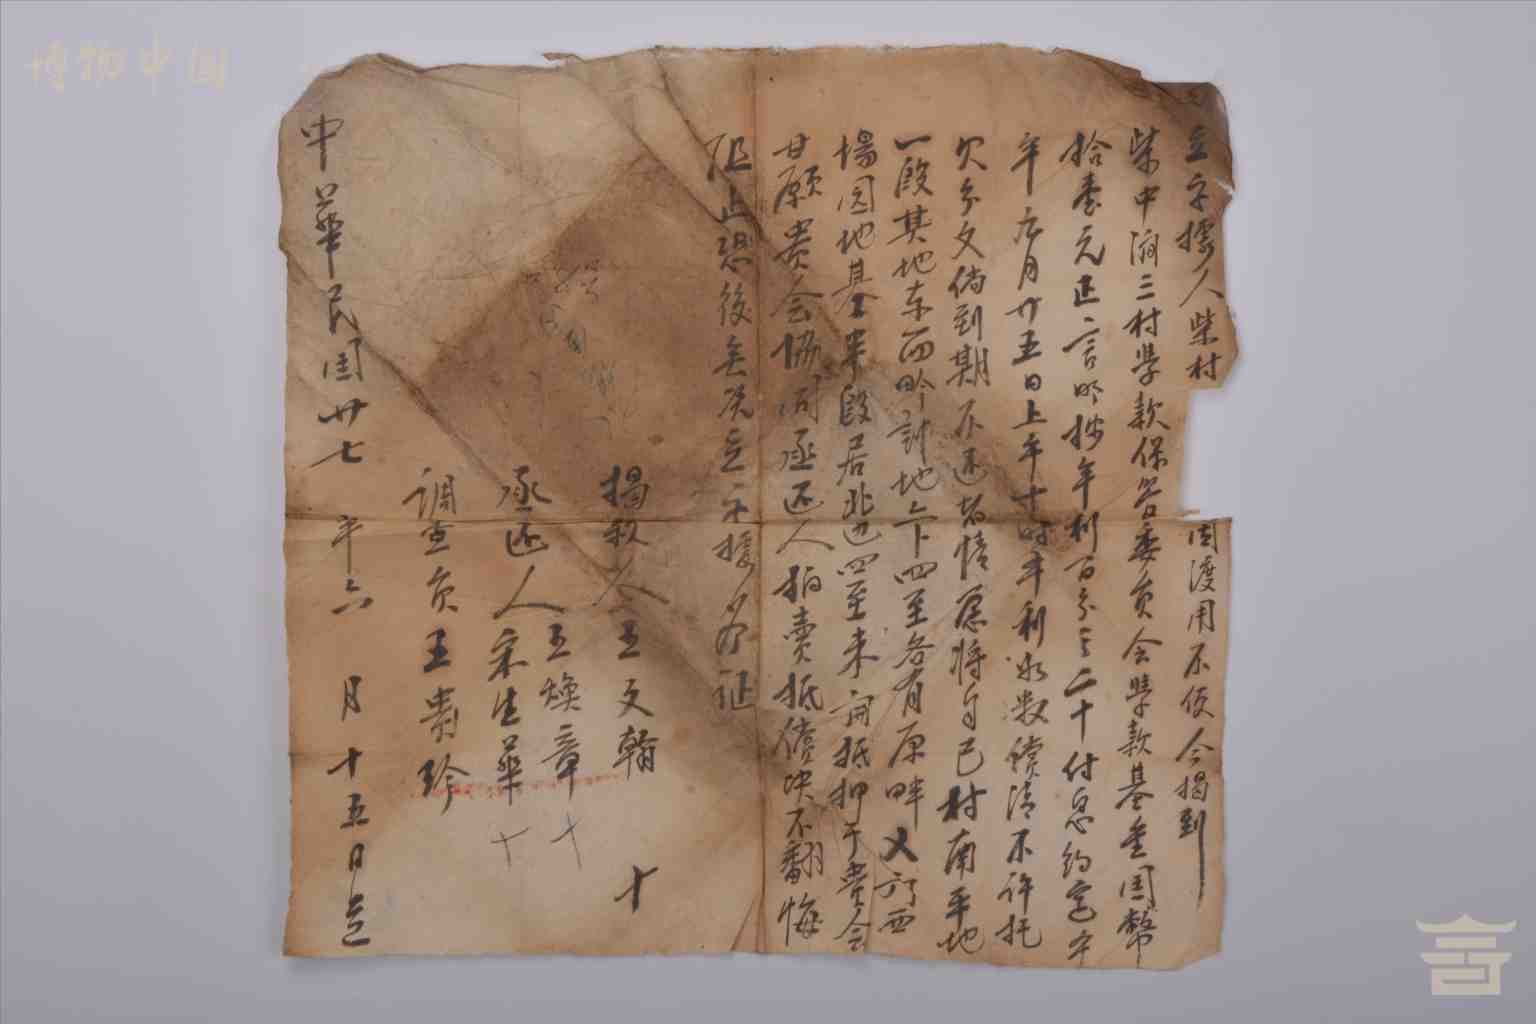 博物中国
立字據人柴村 因渡用不便今揭到
柴中澗三村學款保管委員会學款基金國幣
拾壹元正言明按年利百分之二十付息約定本
年六月廿五日上午十時本利如数償清不許托
欠分文倘到期不还者情愿將自己村南平地
一段其地东西畛計地 四至各有原畔又 西
場园地基半段居北边四至未 抵押于貴会
甘願貴会協同承还人拍賣抵償决不翻悔
阻止恐後無凭立字據为証
揭款人王文翰 十
承还人王焕章 十
宋生華 十
調查員王貴珍
中華民國廿七年六月十五日立